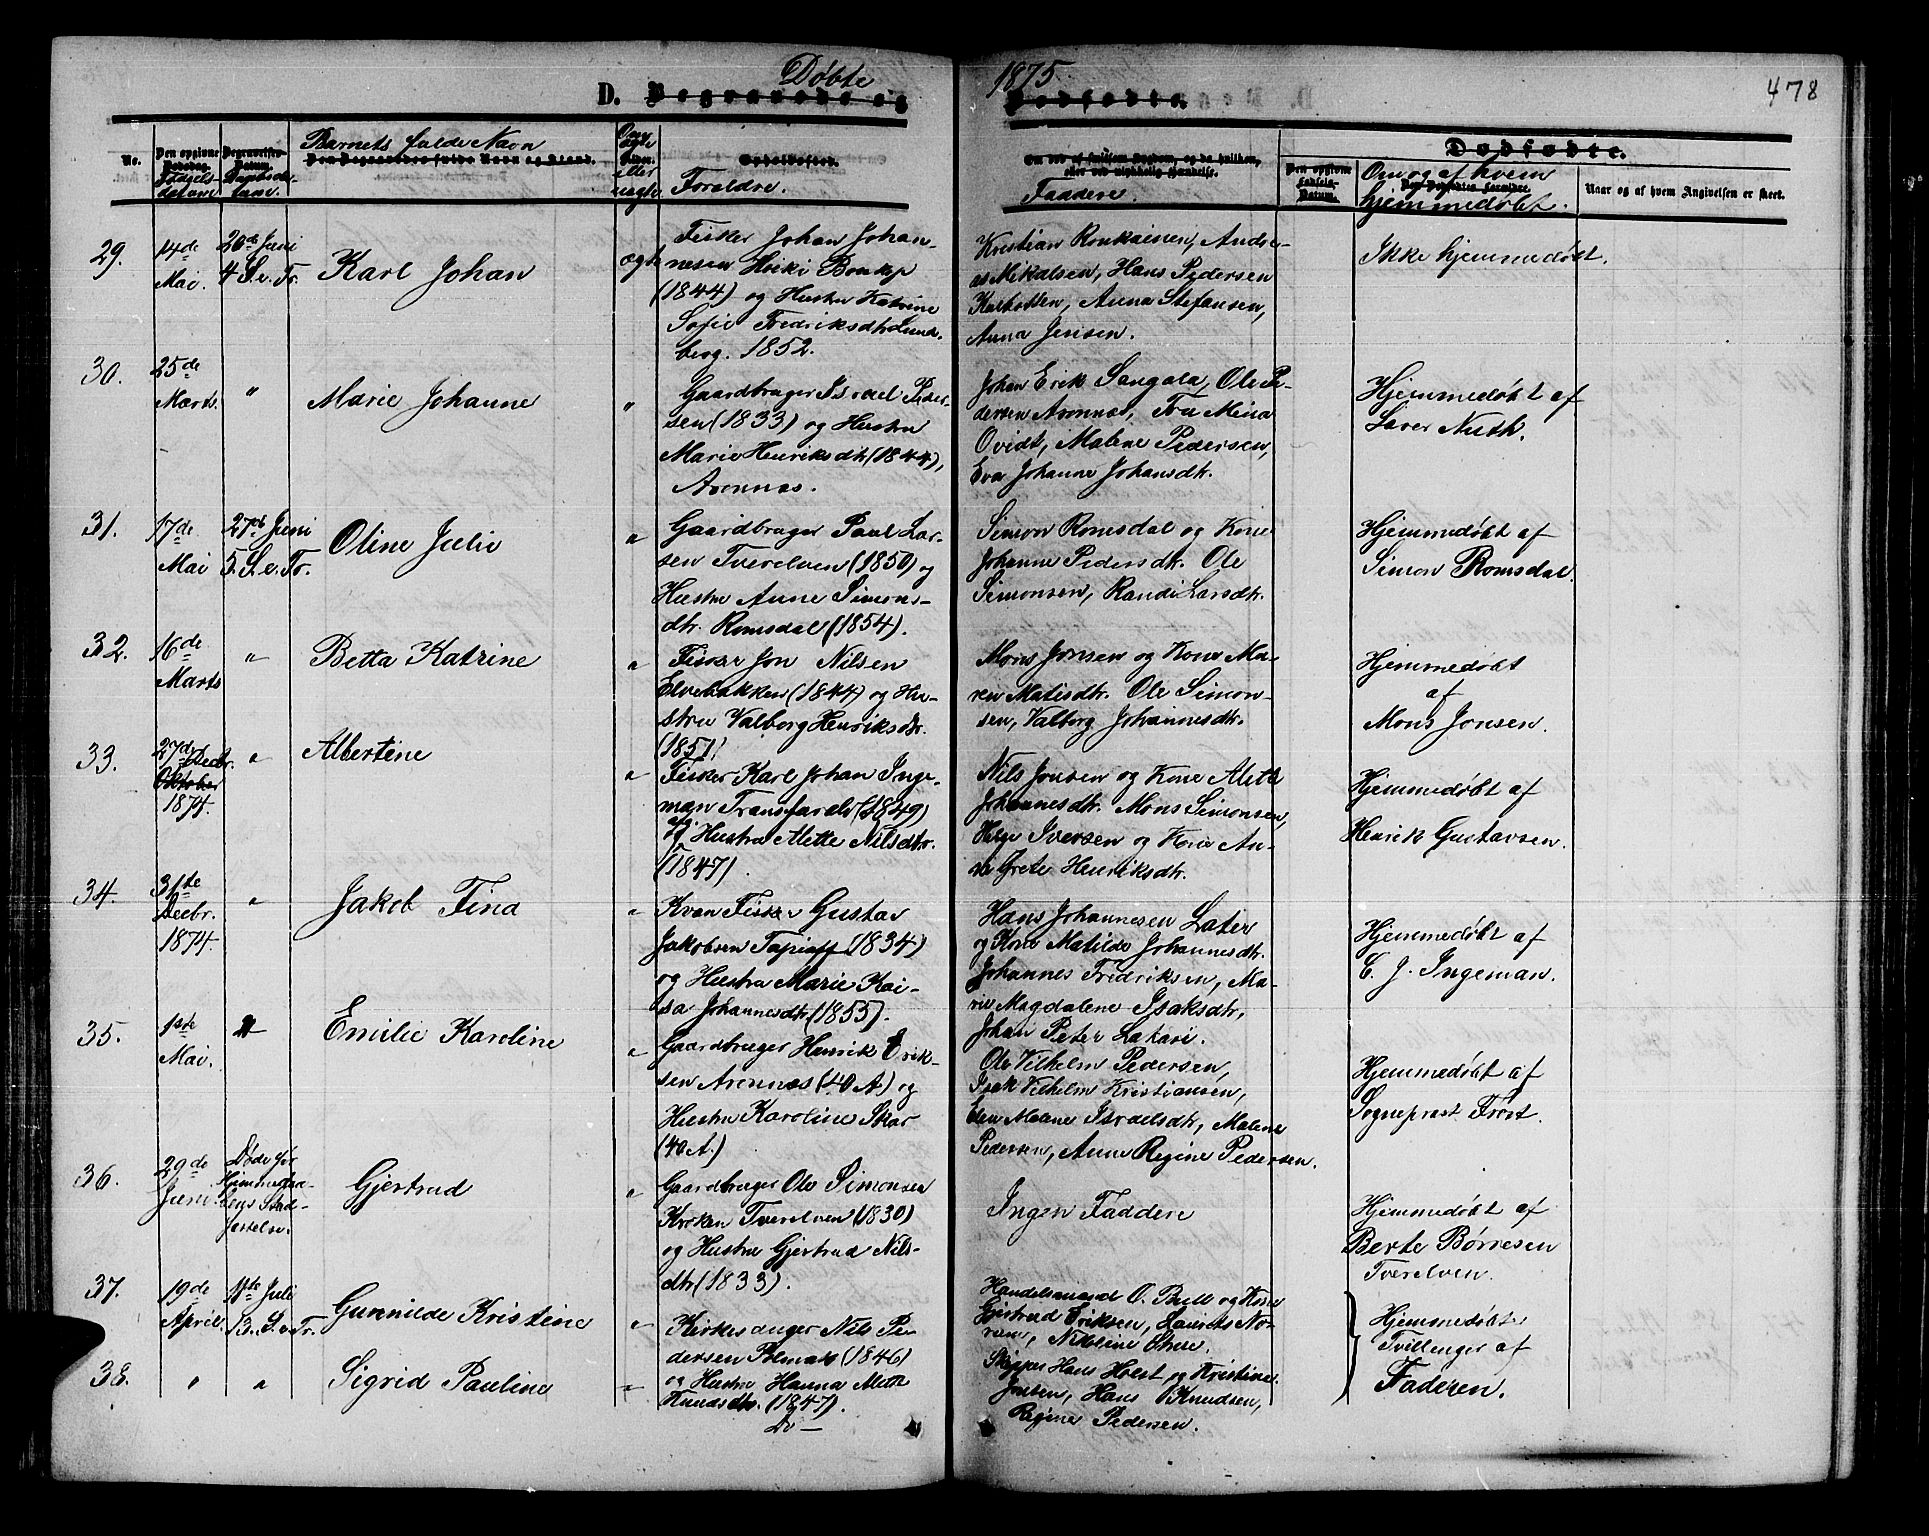 Døbte
1875.
478
D. Begravede og
Dødfødte.
No.
Den opgivne
Dødsdag
Fødgels-
datum
Begravelses-
Datum.
Daabsda-
tum.
Barnets fulde Navn
Den Begravedes fulde Navn og Stand.
Om
ægte
eller
uægte
Opholdssted.
Forældre.
Om død af smitsom Sygdom, og da hvilken,
eller ved ulykkelig Hændelse.
Faddere.
Dødfødte.
Den opgivne
Fødsels-
Datum.
Om og af hvem
Den Dødfødtes Forældre.
hjemmedøbt.
Naar og af hvem Angivelsen er skeet.
29.
14de
Mai.
20de Juni
4 S. e. Tr.
Karl Johan
ægte
Fisker Johan Johan-
nesen Heiki Bonkop
(1844) og Hustru Katrine
Sofie Fredriksdtr Lund-
berg. 1852.
Kristian Ronkainen, Andre-
as Mikalsen, Hans Pedersen
Karbotten, Anna Stefansen,
Anna Jensen.
Ikke hjemmedøbt.
30.
25de
Marts.
"
Marie Johanne
"
Gaardbruger Israel Peder-
sen (1833) og Hustru
Marie Henriksdtr (1844),
Aronnæs.
Johan Erik Sangala, Ole Pe-
dersen Aronnæs, Fru Mina
Qvidt, Malene Pedersen,
Eva Johanne Johansdtr.
Hjemmedøbt af
Lærer Nuth.
31.
17de
Mai
27de Juni
5. S. e. Tr.
Oline Julie
"
Gaardbruger Paul Lar-
sen Tverelven (1850) og
Hustru Anne Simons-
dtr. Romsdal (1854).
Simon Romsdal og Kone
Johanne Pedersdtr. Ole
Simonsen, Randi Larsdtr.
Hjemmedøbt af
Simon Romsdal.
32.
16de
Marts
"
Betta Katrine
"
Fisker Jon Nilsen
Elvebakken (1844) og Hu-
stru Valborg Henriksdtr.
(1851)
Mons Jonsen og Kone Ma-
ren Matisdtr. Ole Simon-
sen, Valborg Johannesdtr.
Hjemmedøbt
af
Mons Jonsen.
33.
27de Decbr.
Oktober
1874.
"
Albertine
"
Fisker Karl Johan Inge-
man Transfarelv (1849)
og Hustru Mette Nilsdtr.
(1847).
Nils Jonsen og Kone Alete
Johannesdtr. Mons Simonsen,
Helge Iversen og Kone An-
ne Grete Henriksdtr.
Hjemmedøbt af
Henrik Gustavsen.
34.
31te
Decbr.
1874.
"
Jakob Find
"
Kvæn Fisker Gustav
Jakobsen Tapiaff (1834)
og Hustru Marie Kai-
sa Johannesdtr (1855).
Hans Johannesen Later
og Kone Matilde Johannesdtr.
Johannes Fredriksen, Ma-
rie Magdalene Isaksdtr,
Johan Peter Lakari.
Hjemmedøbt af
C. J. Ingeman.
35.
1ste
Mai.
"
Emilie Karoline
"
Gaardbruger Henrik Erik-
sen Aronnæs (40 A) og
Hustru Karoline Skar
(40 A.)
Ole Vilhelm Pedersen,
Isak Vilhelm Kristiansen,
Elen Malene Israelsdtr, Malene
Pedersen, Anne Regine Pedersen.
Hjemmedøbt af
Sogneprest Frost.
36.
29de
Juni.
Døde før
Hjemmedaa-
bens Stad-
festelse.
Gjertrud
"
Gaardbruger Ole Simonsen
Kroken Tverelven (1830)
og Hustru Gjertrud Nils-
dtr (1833).
Ingen Faddere
Hjemmedøbt af
Berte Børresen
Tverelven.
37.
19de
April.
11te Juli
13. S. e Tr.
Gunnilde Kristine
"
Kirkesanger Nils Pe-
dersen Polmak (1846)
og Hustru Hanna Mette
Knudsdtr. (1847).
Handelsmand O. Bull og Kone
Gjertrud Eriksen, Laurits No-
rum, Nikoline Strøe.
Hjemmedøbte
Tvillinger af
Faderen.
38.
"
"
Sigrid Pauline
"
Do —
Skipper Hans Holst og Kristine
Jonsen, Hans Knudsen,
Regine Pedersen.